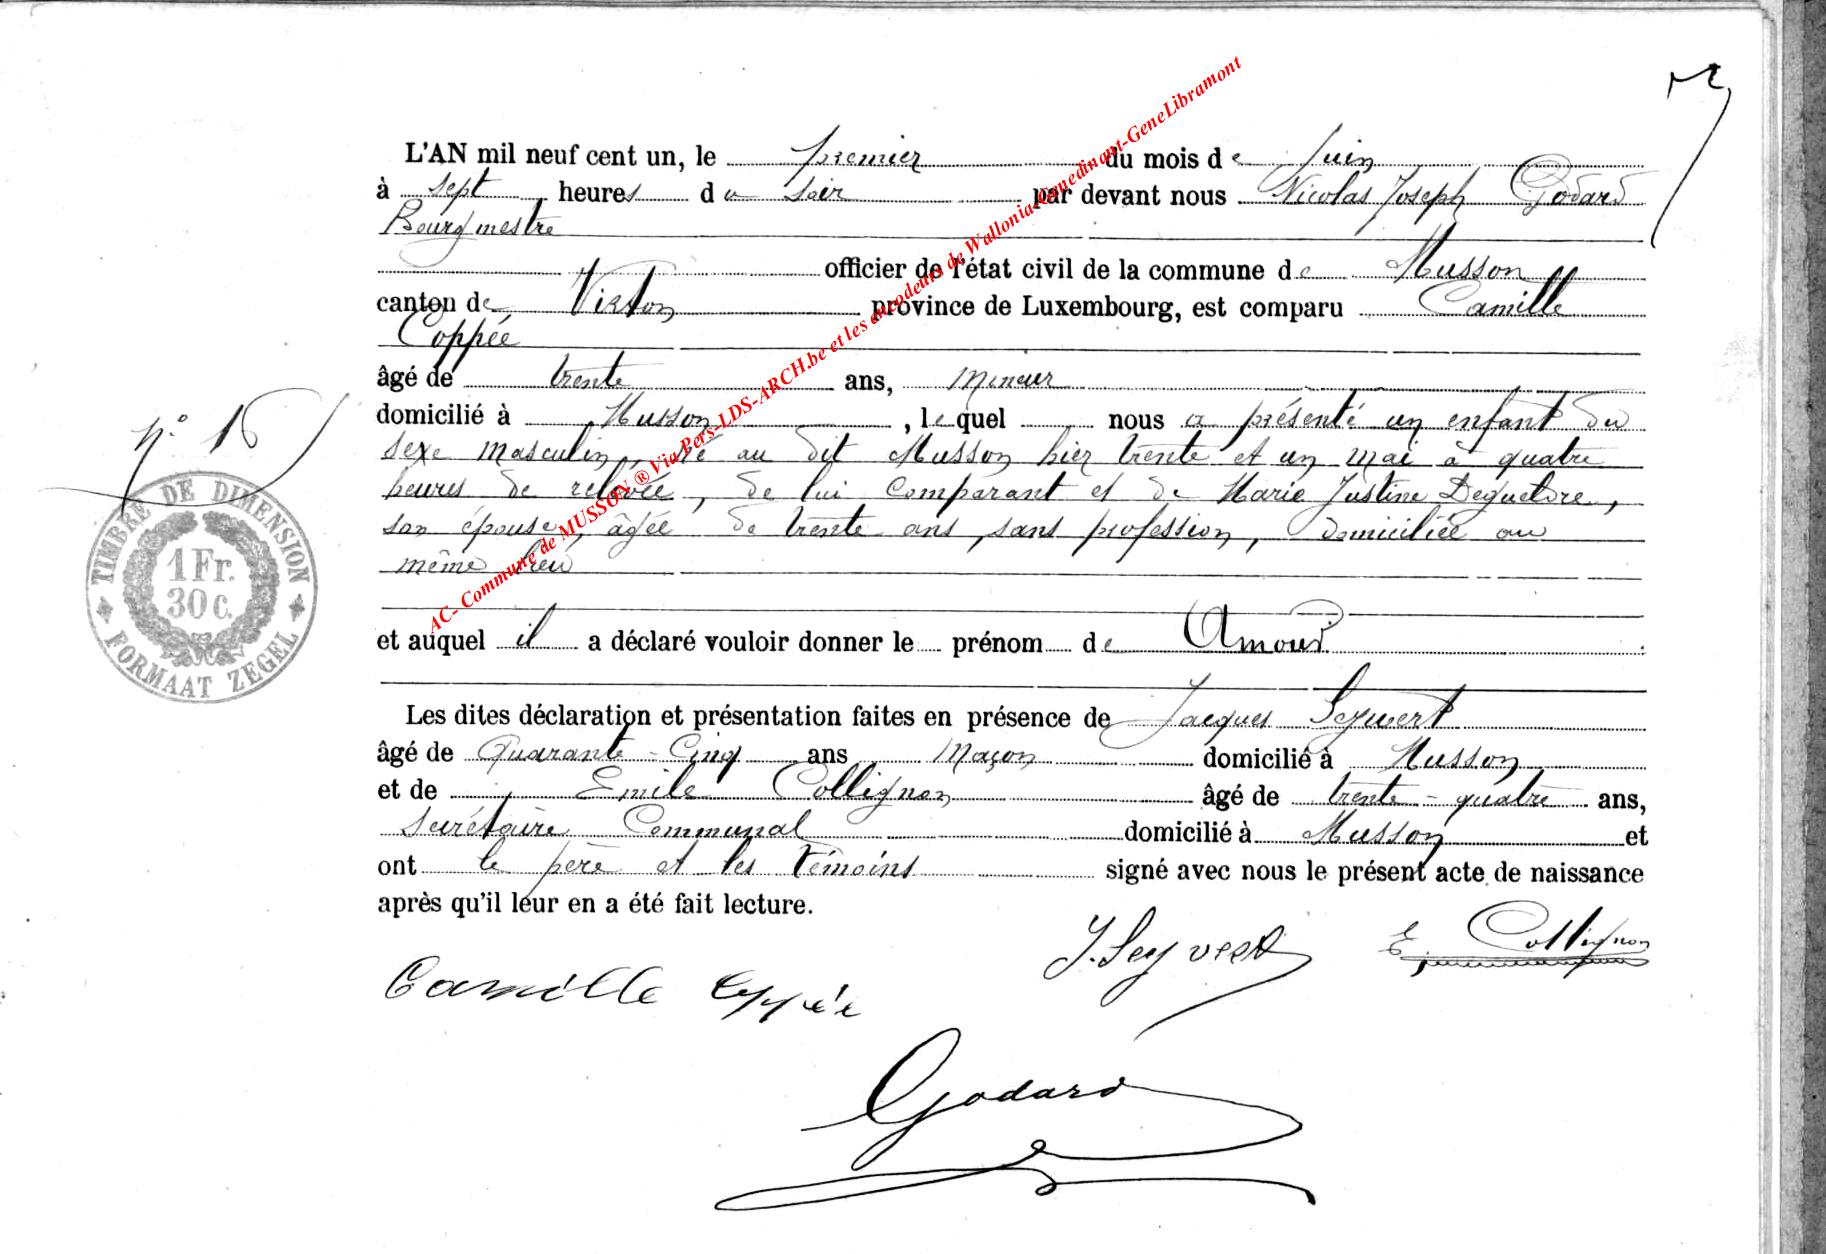 L'AN mil neuf cent un, le premier du mois de juin
à sept heures du soir par devant nous Nicolas Joseph Godard
Bourgmestre
officier de l'état civil de la commune de Musson
canton de Virton province de Luxembourg, est comparu Camille
Coppée
âgé de trente ans, mineur
domicilié à Musson, lequel nous a présenté un enfant du
sexe masculin, né au dit Musson hier trente et un mai à quatre
heures de relevée, de lui comparant et de Marie Justine Dequeldre,
son épouse, âgée de trente ans, sans profession, domiciliée au
même lieu
et auquel il a déclaré vouloir donner le prénom de Amour
Les dites déclaration et présentation faites en présence de Jacques Seywert
âgé de Quarante-Cinq ans Maçon domicilié à Musson
et de Emile Collignon âgé de trente-quatre ans,
Secrétaire Communal domicilié à Musson et
ont le père et les témoins signé avec nous le présent acte de naissance
après qu'il leur en a été fait lecture.
J. Seyvert E. Collignon
Camille Coppée
Godard
n° 16
TIMBRE DE DIMENSION
1 Fr.
30 c.
FORMAAT ZEGEL
AC- Commune de MUSSON ® Via Pers-LDS-ARCH.be et les encodeurs de Wallonia-Genedinant-GeneLibramont